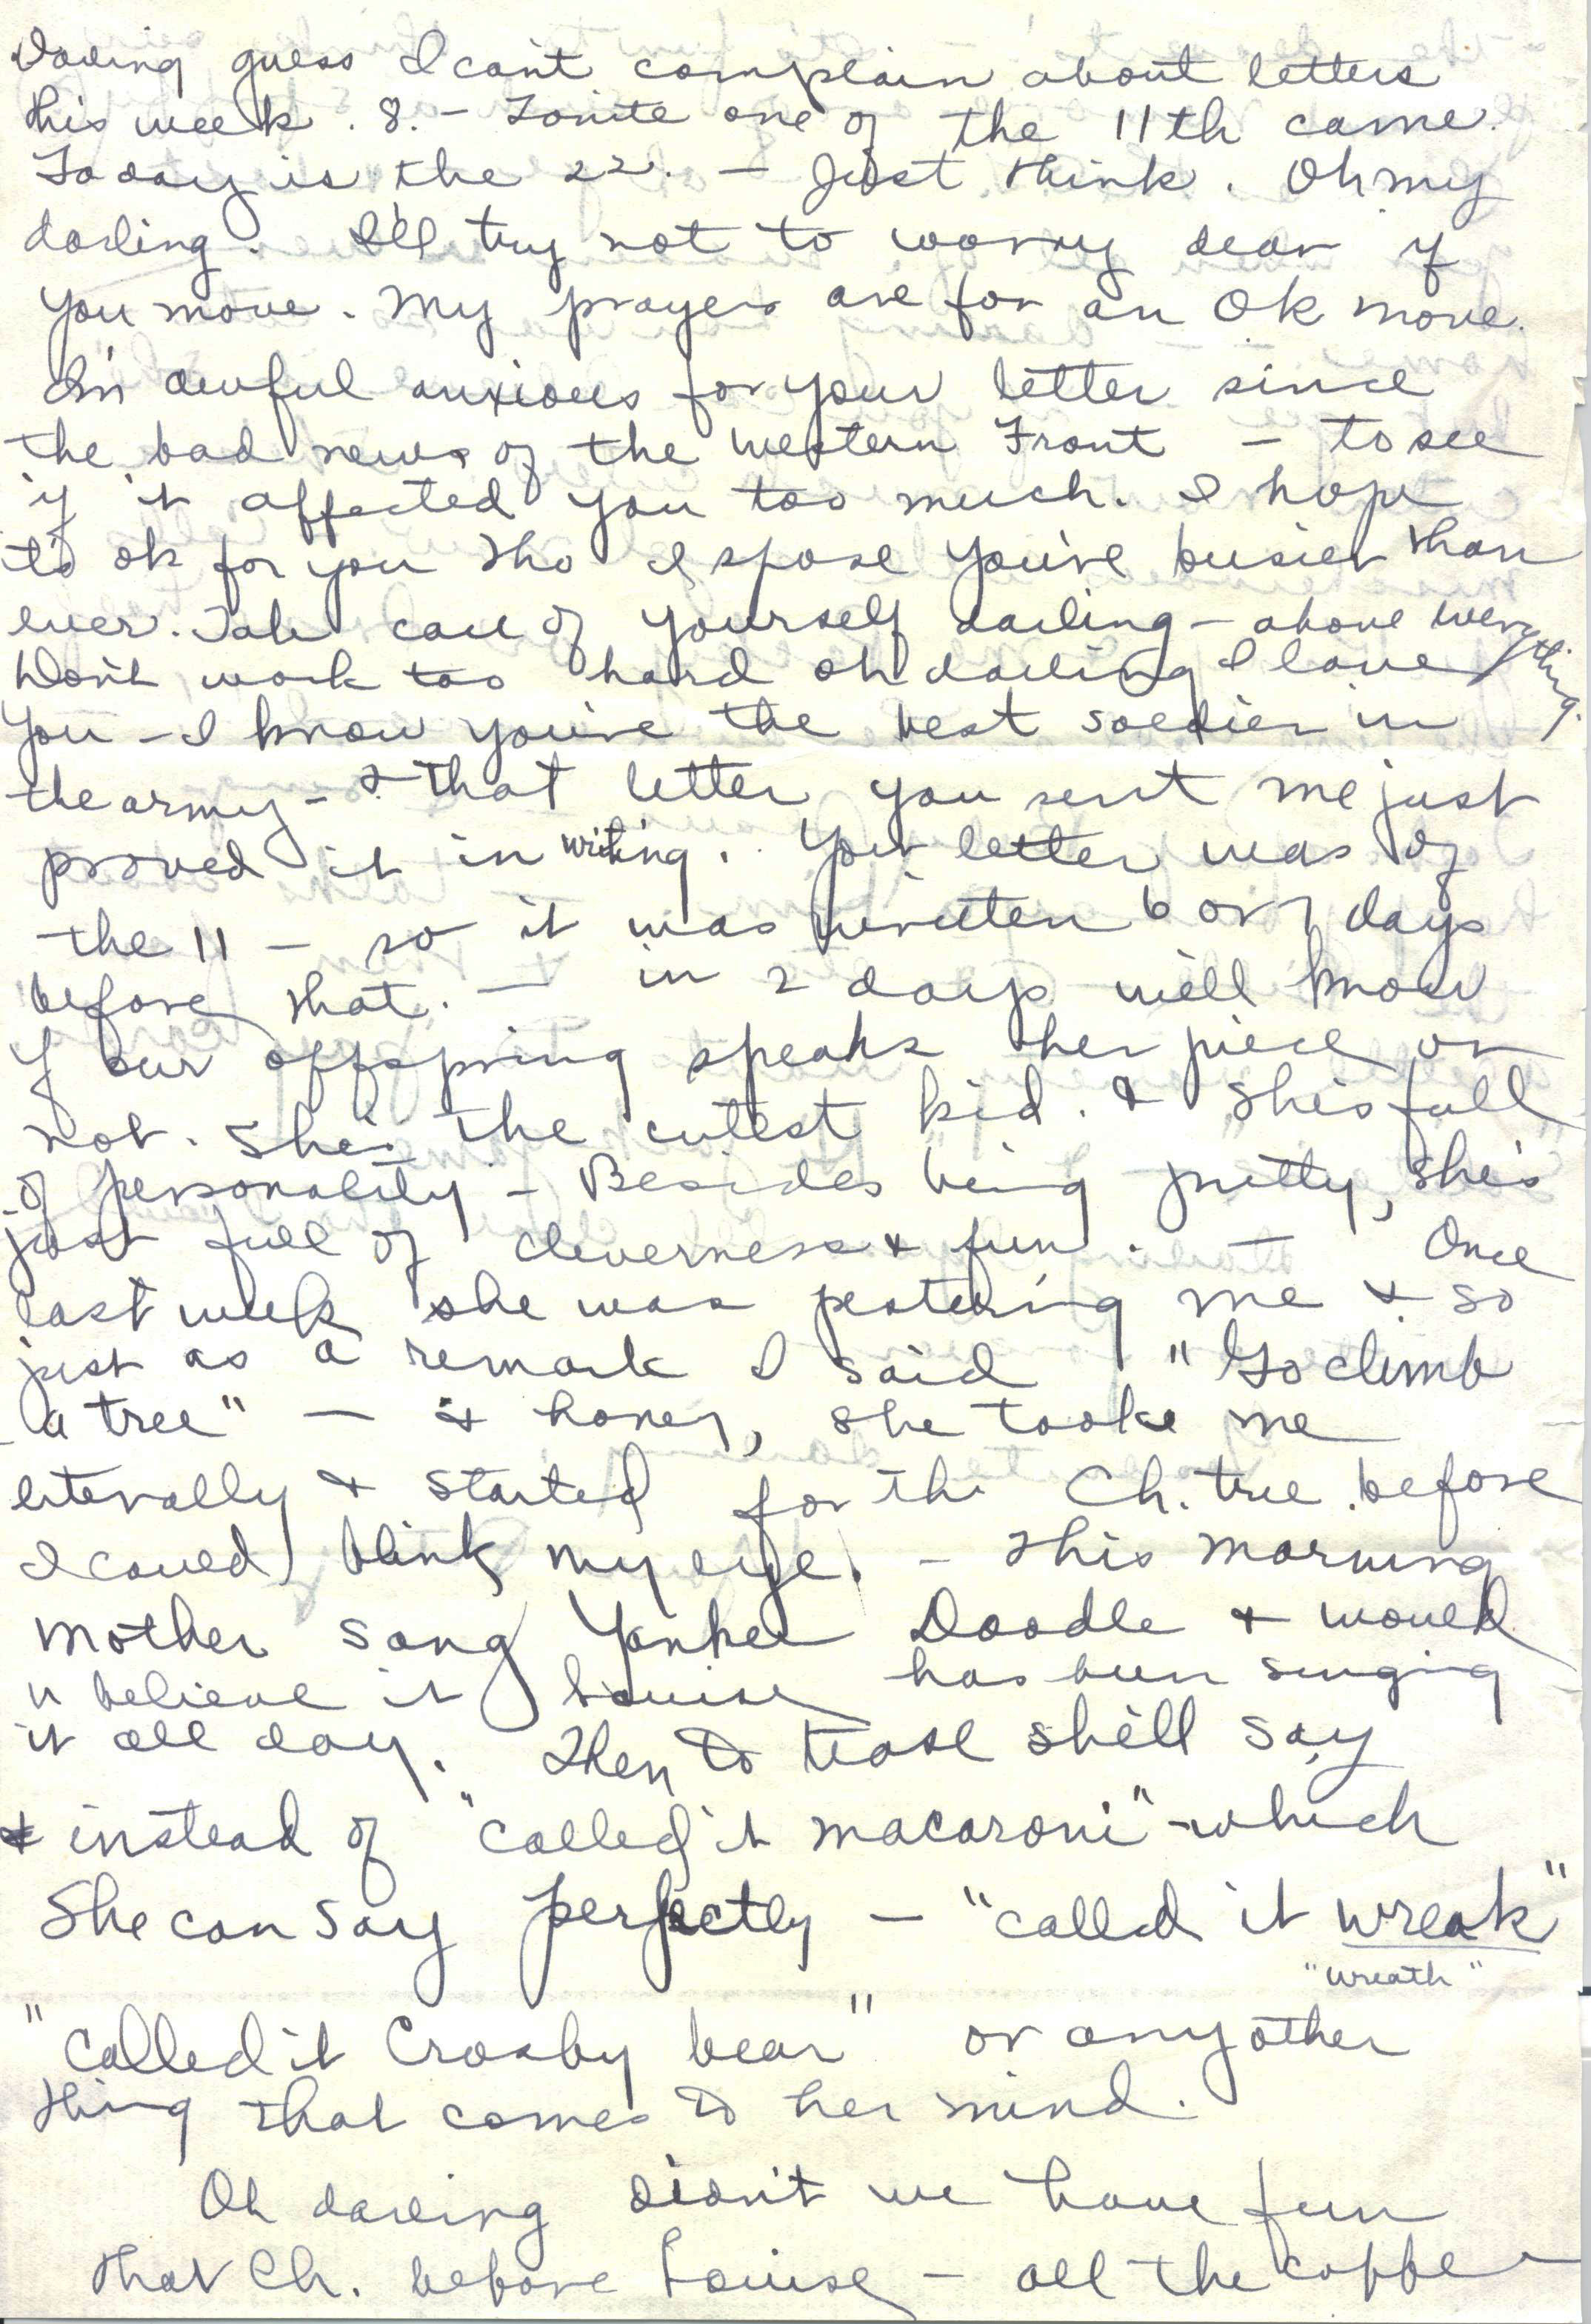 Darling guess I can't complain about letters
this week. 8. – Tonite one of the 11th came.
Today is the 22. – Just think. Oh my
darling. I'll try not to worry dear if
you move. My prayers are for an OK move.
I'm awful anxious for your letter since
the bad news of the Western Front – to see
if it affected you too much. I hope
it's ok for you tho I spose you're busier than
ever. Take care of yourself darling – above everything.
Don't work too hard oh darling I love
you – I know you're the best soldier in
the army – & that letter you sent me just
proved it in writing. Your letter was of
the 11 – so it was written 6 or 7 days
before that. – in 2 days we'll know
if our offspring speaks her piece or
not. She's the cutest kid. & she's full
of personality – Besides being pretty, she's
just full of cleverness & fun. – Once
last week she was pestering me & so
just as a remark I said "Go climb
a tree" – & honey, she tooke me
literally & started for the Ch. tree before
I could blink my eye. – This morning
mother sang Yankee Doodle & would
u believe it Louise has been singing
it all day. Then to tease she'll say
& instead of "called it macaroni" – which
She can say perfectly – "called it wreak"
"wreath"
"called it Crosby bear" or any other
thing that comes to her mind.
Oh darling didn't we have fun
that Ch. before Louise – all the coffee